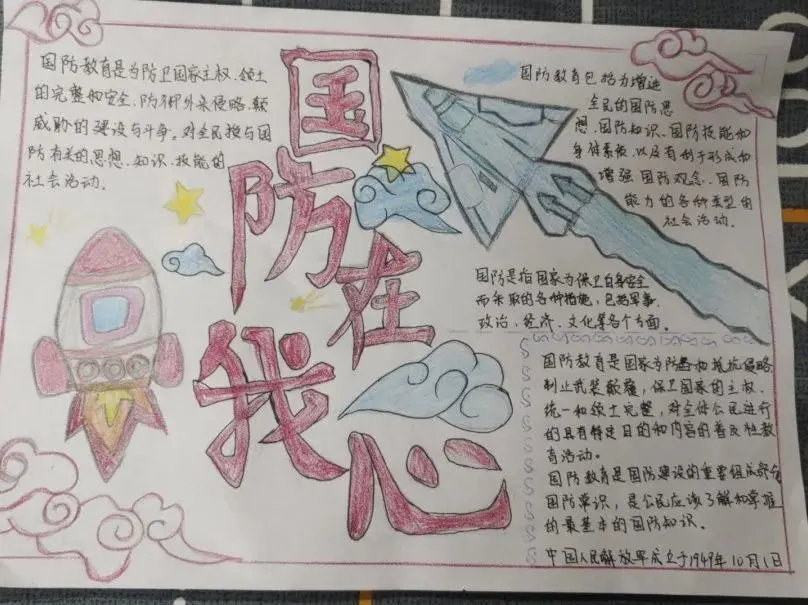 国防教育是为防卫国家主权、领土
的完整和安全,防御外来侵略、颠
威胁的建设与斗争。对全民授与国
防有关的思想、知识、技能的
社会活动。
国防在我心
国防教育包括为增进
全民的国防思
想、国防知识、国防技能和
身体素质,以及有利于形成和
增强国防观念、国防
能力的各种类型的
社会活动。
国防是指国家为保卫自身安全
而采取的各种措施,包括军事、
政治、经济、文化等各个方面。
国防教育是国家为防备和抵抗侵略
制止武装颠覆,保卫国家的主权、
统一和领土完整,对全体公民进行
的具有特定目的和内容的普及性教
育活动。
国防教育是国防建设的重要组成部分
国防常识,是公民应该了解和掌握
的最基本的国防知识。
中国人民解放军成立于1949年10月1日